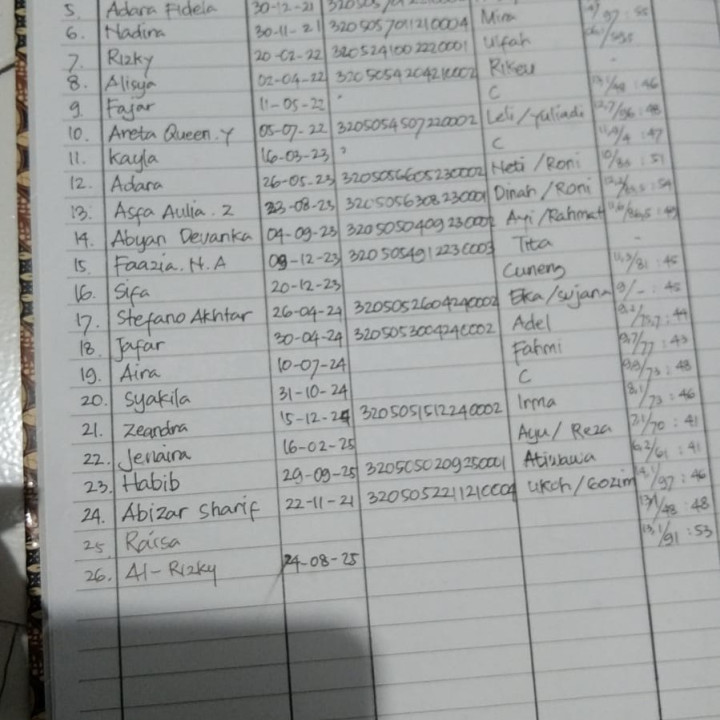 5. Adara Fidela 30-12-21
6. Nadira 30-11-21 3205057011210004 Mira
7. Rizky 20-02-22 3205241002220001 Ulfah
8. Alisya 02-04-22 3205054204210002 Rikeu -
9. Fajar 11-05-22 " C : 46
10. Areta Queen.Y 05-07-22 3205054507220002 Leli/Yuliadi 12,7/96 : 48
11. Kayla 16-03-23 C : 47
12. Adara 26-05-23 3205056605230002 Heti/Roni : 51
13. Asfa Aulia.Z 23-08-23 3205056308230001 Dinah/Roni : 54
14. Abyan Devanka 04-09-23 3205050409230002 Ayi/Rahmat
15. Faazia.N.A 09-12-23 3205054912230003 Tita -
16. Sifa 20-12-23 Cuneng 11,3/81 : 45
17. Stefano Akhtar 26-04-24 3205052604240002 Eka/Sujana 9/- : 45
18. Jafar 30-04-24 3205053004240002 Adel : 44
19. Aira 10-07-24 Fahmi /77 : 43
20. Syakila 31-10-24 C /73 : 48
21. Zeandra 15-12-24 3205051512240002 Irma 8,1/73 : 46
22. Jenaira 16-02-25 Ayu/Reza 7,1/70 : 41
23. Habib 29-09-25 3205050209250001 6,2/61 : 41
24. Abizar Sharif 22-11-21 3205052211210004 /97 : 46
25 Raisa 13,1/48 : 48
26. Al-Rizky 24-08-25 13,1/91 : 53